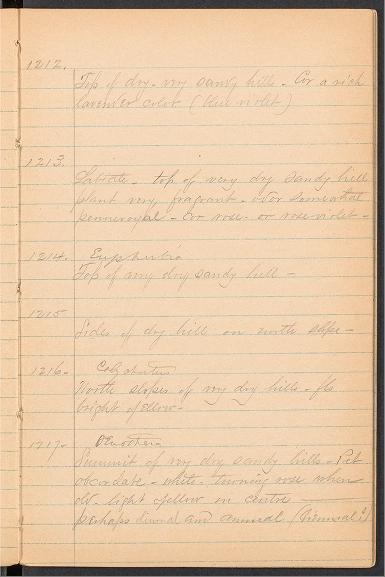 1212.
Top of dry - very sandy hills - Cor a rich
lavender color (blue violet)
1213.
Labiate - top of very dry sandy hill
plant very fragrant - odor somewhat
pennyroyal - Cor rose - or rose-violet -
1214. Euphorbia
Top of very dry sandy hill -
1215
Sides of dry hill on north slope -
1216 -
North slopes of very dry hills - fls
bright yellow -
1217 - Oenothera
Summit of very dry sandy hills - Pet
obcordate - white - turning rose when
old light yellow in centre
perhaps diurnal and annual (biennial?)